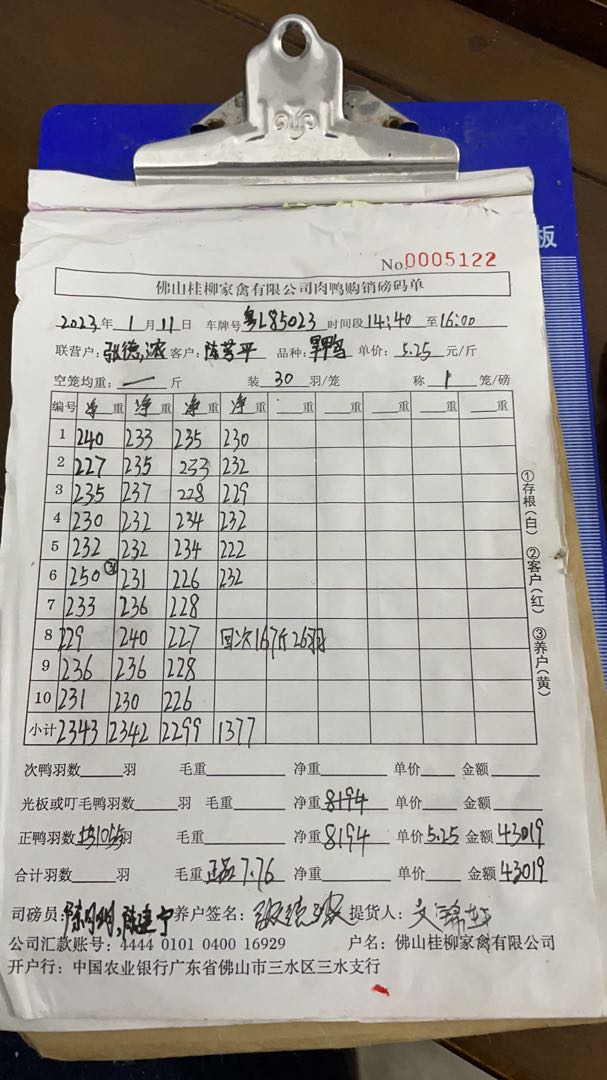 板
No.0005122
佛山桂柳家禽有限公司肉鸭购销磅码单
2023年 1月11日 车牌号粤L85023 时间段14:40至16:00
联营户: 张德浓 客户: 陈芳平 品种: 单价: 5.25元/斤
空笼均重: 一 斤 装 30 羽/笼 称 1 笼/磅
编号 净重 净重 净重 净重 重 重 重 重
1 240 233 235 230
2 227 235 233 232
3 235 237 228 229
4 230 232 234 232
5 232 232 234 222
6 250 31 231 226 232
7 233 236 228
8 229 240 227 回次167斤26羽
9 236 236 228
10 231 230 226
小计 2343 2342 2299 1377
①存根(白) ②客户(红) ③养户(黄)
次鸭羽数 羽 毛重 净重 单价 金额
光板或叮毛鸭羽数 羽 毛重 净重8194 单价 金额
正鸭羽数共1055羽 毛重 净重8194 单价5.25 金额43019
合计羽数 羽 毛重正品7.76 净重 单价 金额43019
司磅员: 养户签名: 提货人:
公司汇款账号: 4444 0101 0400 16929 户名: 佛山桂柳家禽有限公司
开户行: 中国农业银行广东省佛山市三水区三水支行